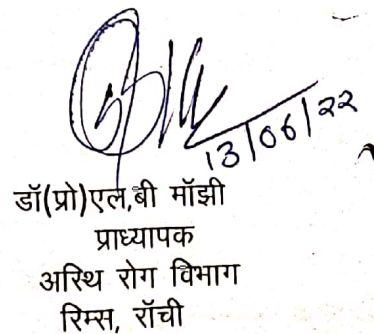 13/06/22
डॉ(प्रो)एल,बी मॉझी
प्राध्यापक
अस्थि रोग विभाग
रिम्स, रॉची